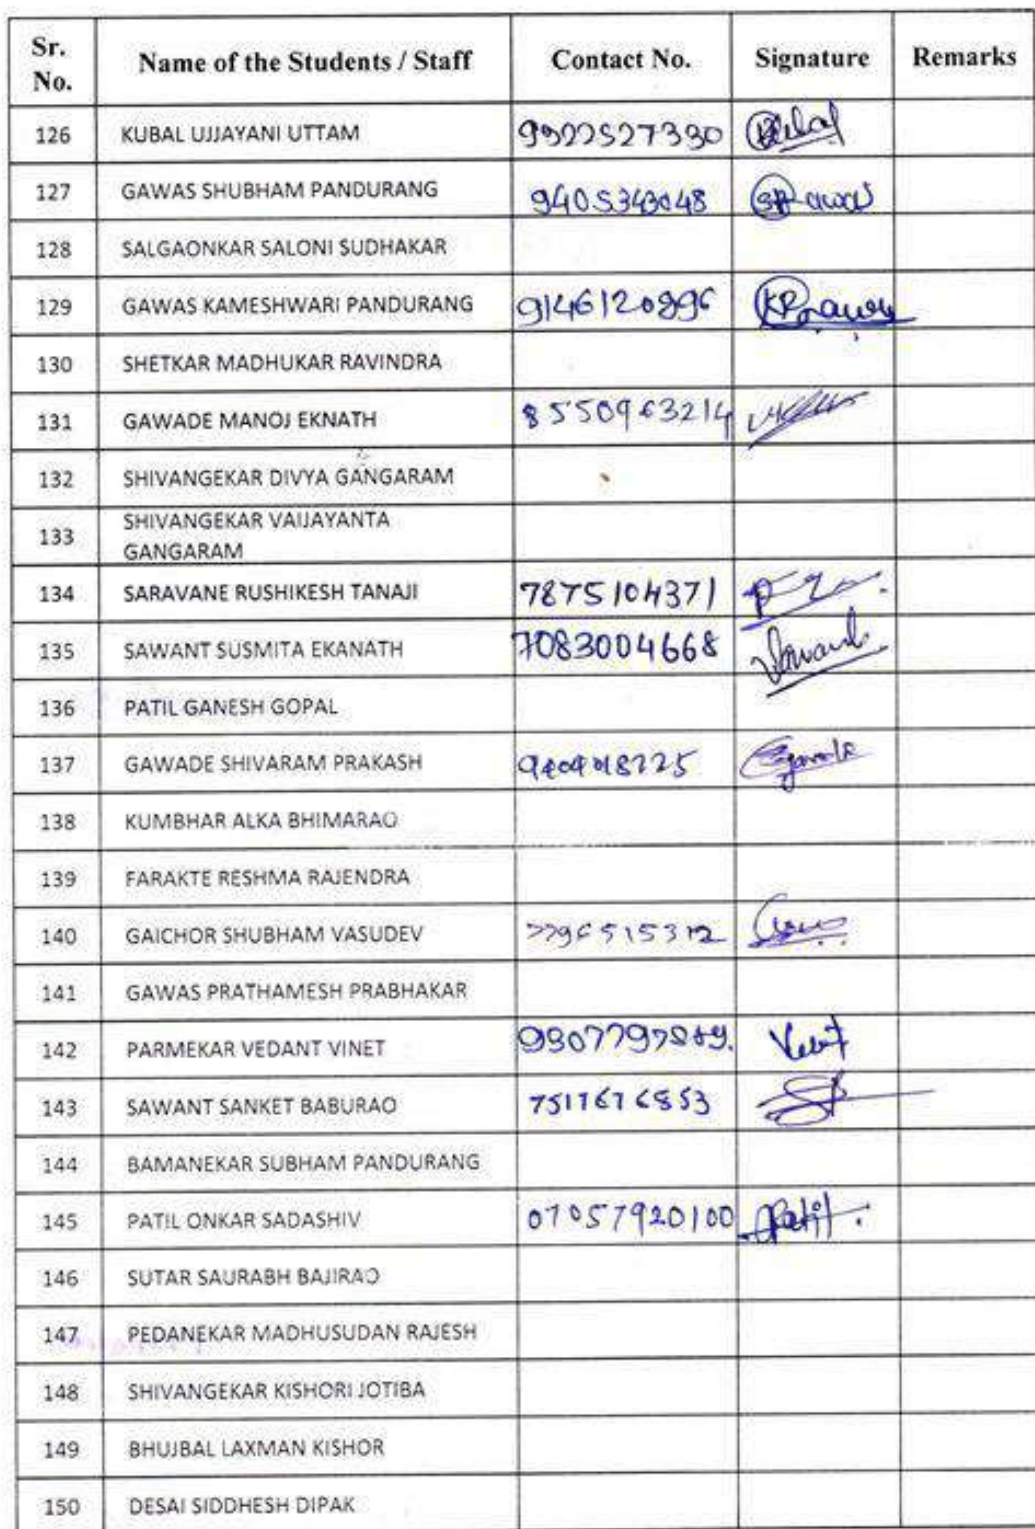 Sr. No. Name of the Students / Staff Contact No. Signature Remarks
126 KUBAL UJJAYANI UTTAM
127 GAWAS SHUBHAM PANDURANG 9405343048
128 SALGAONKAR SALONI SUDHAKAR
129 GAWAS KAMESHWARI PANDURANG
130 SHETKAR MADHUKAR RAVINDRA
131 GAWADE MANOJ EKNATH 8550963214
132 SHIVANGEKAR DIVYA GANGARAM
133 SHIVANGEKAR VAIJAYANTA
GANGARAM
134 SARAVANE RUSHIKESH TANAJI 7875104371
135 SAWANT SUSMITA EKANATH 7083004668 Sawant
136 PATIL GANESH GOPAL
137 GAWADE SHIVARAM PRAKASH
138 KUMBHAR ALKA BHIMARAO
139 FARAKTE RESHMA RAJENDRA
140 GAICHOR SHUBHAM VASUDEV
141 GAWAS PRATHAMESH PRABHAKAR
142 PARMEKAR VEDANT VINET
143 SAWANT SANKET BABURAO 7517676853
144 BAMANEKAR SUBHAM PANDURANG
145 PATIL ONKAR SADASHIV 07057920100 Patil
146 SUTAR SAURABH BAJIRAO
147 PEDANEKAR MADHUSUDAN RAJESH
148 SHIVANGEKAR KISHORI JOTIBA
149 BHUJBAL LAXMAN KISHOR
150 DESAI SIDDHESH DIPAK